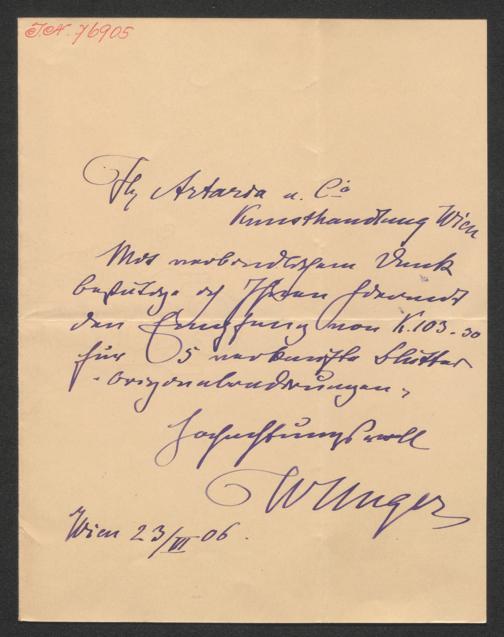 J.N. 76905
Artaria u. Co
Kunsthandlung Wien
Mit verbindlichem Dank
bestätige ich Ihnen hiermit
den Empfang von K. 103.30
für 5 verkaufte Blätter
- Originalradierungen.
Hochachtungsvoll
W Unger
Wien 23/VI 06.